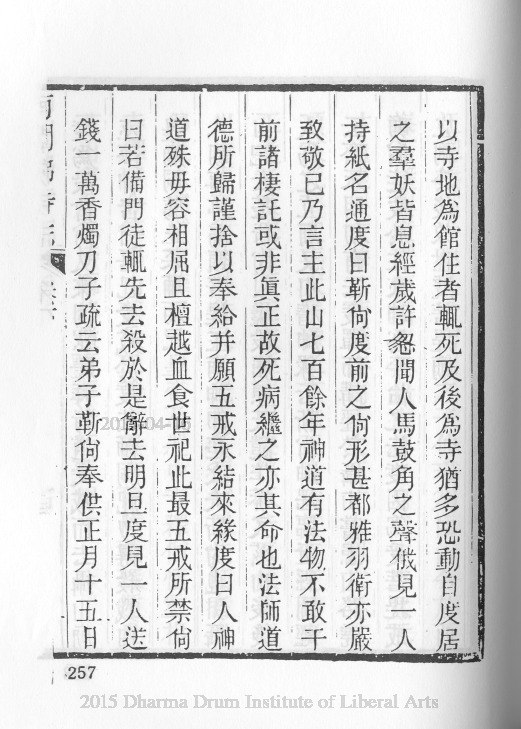 以寺地為館住者輒死及後為寺猶多恐動自度居
之羣妖皆息經歲許忽聞人馬鼓角之聲俄見一人
持紙名通度曰靳尙度前之尙形甚都雅羽衛亦嚴
致敬已乃言主此山七百餘年神道有法物不敢干
前諸棲託或非眞正故死病繼之亦其命也法師道
德所歸謹捨以奉給并願五戒永結來緣度曰人神
道殊毋容相屈且檀越血食世祀此最五戒所禁尙
曰若備門徒輒先去殺於是辭去明旦度見一人送
錢一萬香燭刀子疏云弟子靳尙奉供正月十五日
257
2015 Dharma Drum Institute of Liberal Arts